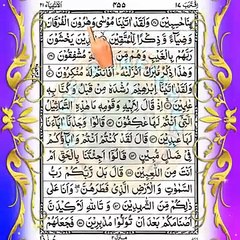 اقترب ١٧ ٣٥٥ الانبيآء ٢١
حٰسِبِيْنَ وَلَقَدْ اٰتَيْنَا مُوْسٰى وَهٰرُوْنَ الْفُرْقَانَ
وَضِيَآءً وَّذِكْرًا لِّلْمُتَّقِيْنَ الَّذِيْنَ يَخْشَوْنَ
رَبَّهُمْ بِالْغَيْبِ وَهُمْ مِّنَ السَّاعَةِ مُشْفِقُوْنَ
وَهٰذَا ذِكْرٌ مُّبٰرَكٌ اَنْزَلْنٰهُ اَفَاَنْتُمْ لَهٗ مُنْكِرُوْنَ
وَلَقَدْ اٰتَيْنَآ اِبْرٰهِيْمَ رُشْدَهٗ مِنْ قَبْلُ وَكُنَّا بِهٖ
عٰلِمِيْنَ اِذْ قَالَ لِاَبِيْهِ وَقَوْمِهٖ مَا هٰذِهِ التَّمَاثِيْلُ
الَّتِيْٓ اَنْتُمْ لَهَا عٰكِفُوْنَ قَالُوْا وَجَدْنَآ اٰبَآءَنَا
لَهَا عٰبِدِيْنَ قَالَ لَقَدْ كُنْتُمْ اَنْتُمْ وَاٰبَآؤُكُمْ
فِيْ ضَلٰلٍ مُّبِيْنٍ قَالُوْٓا اَجِئْتَنَا بِالْحَقِّ اَمْ
اَنْتَ مِنَ اللّٰعِبِيْنَ قَالَ بَلْ رَّبُّكُمْ رَبُّ
السَّمٰوٰتِ وَالْاَرْضِ الَّذِيْ فَطَرَهُنَّ وَاَنَا عَلٰى
ذٰلِكُمْ مِّنَ الشّٰهِدِيْنَ وَتَاللّٰهِ لَاَكِيْدَنَّ
اَصْنَامَكُمْ بَعْدَ اَنْ تُوَلُّوْا مُدْبِرِيْنَ فَجَعَلَهُمْ